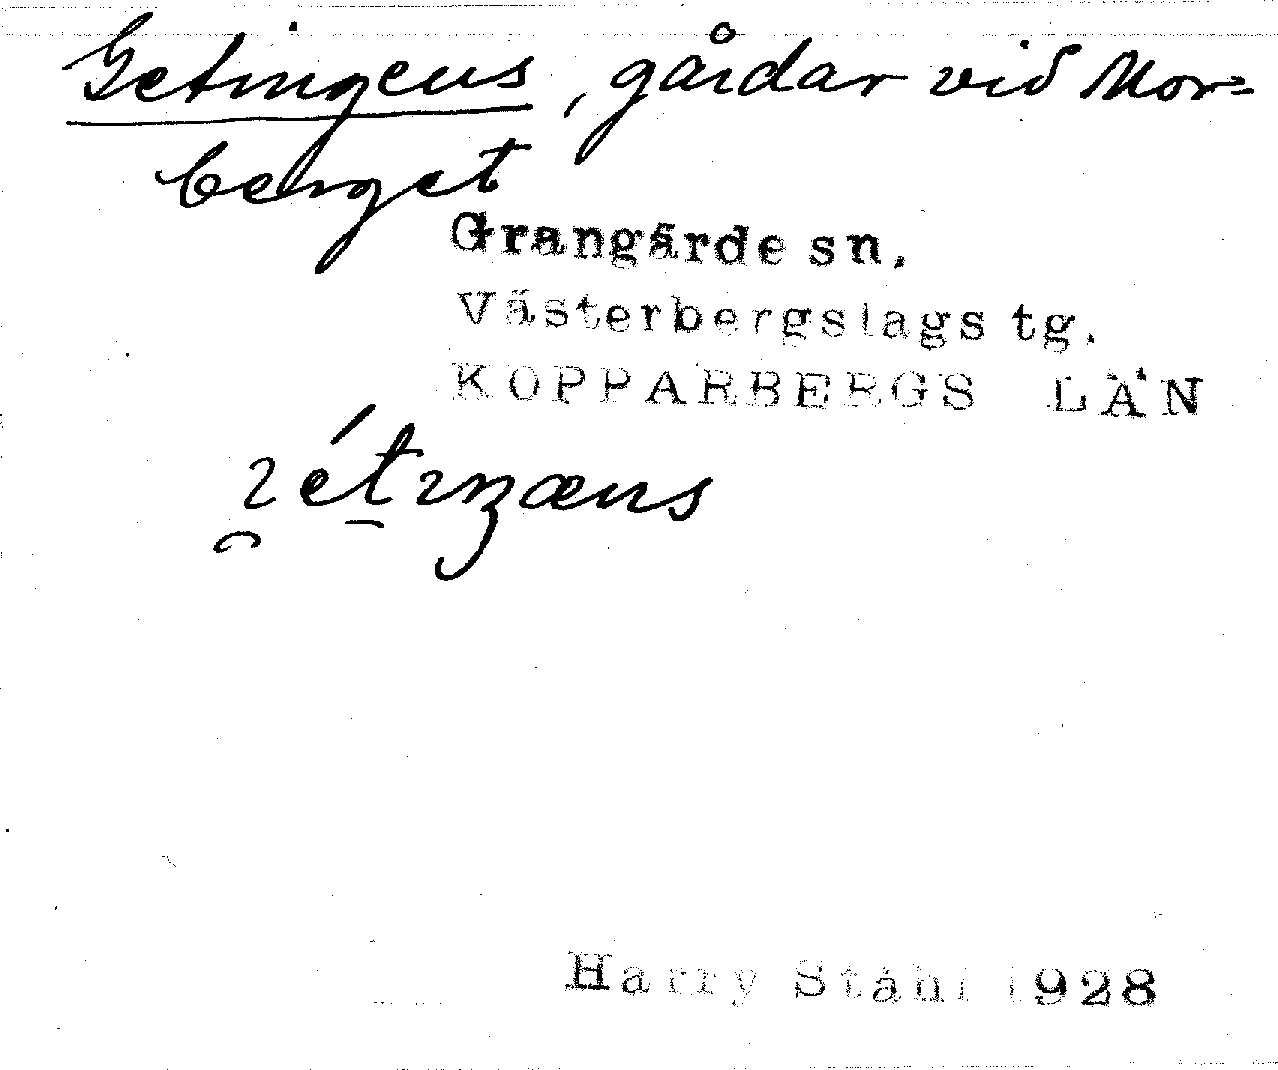 Getingens, gårdar vid Mor-
berget
Grangärde sn.
Västerbergslags tg.
KOPPARBERGS LÄN
Harry Ståhl 1928